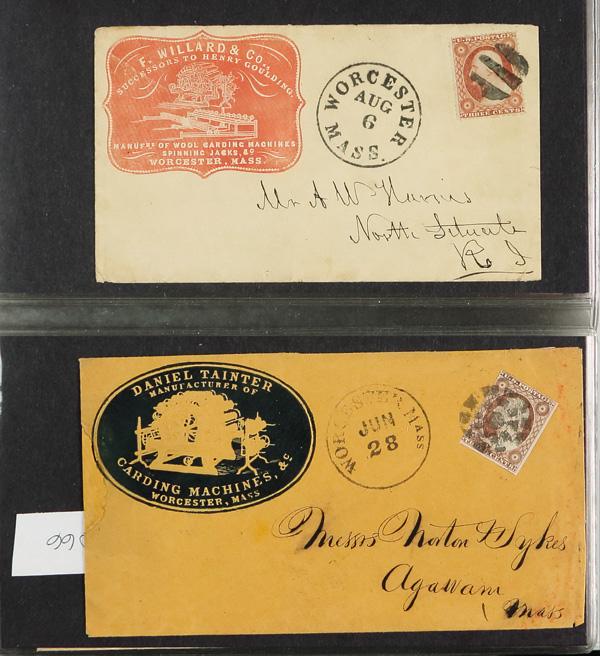 F. WILLARD & CO.,
SUCCESSORS TO HENRY GOULDING,
MANUFRS OF WOOL CARDING MACHINES
SPINNING JACKS, &c
WORCESTER, MASS.
WORCESTER
AUG
6
MASS.
U.S. POSTAGE
THREE CENTS
Mr A W Harris
North Situate
R I
DANIEL TAINTER
MANUFACTURER OF
CARDING MACHINES, &c
WORCESTER, MASS
WORCESTER, MASS
JUN
28
U.S. POSTAGE
Messrs Norton & Sykes
Agawam
Mass